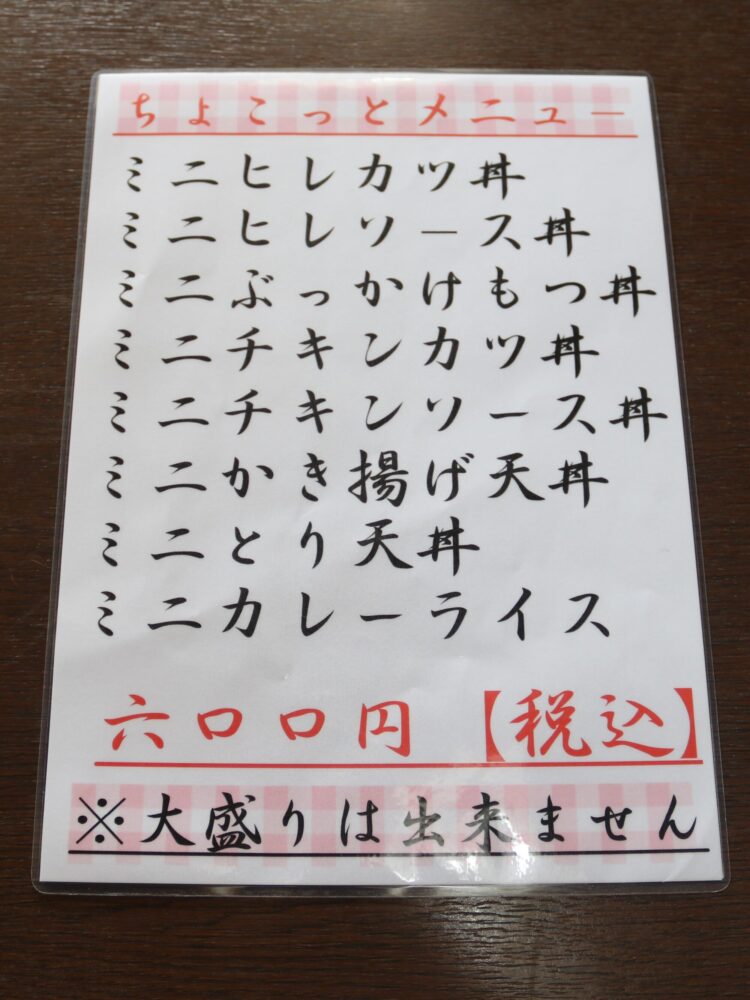 ちょこっとメニュー
ミニヒレカツ丼
ミニヒレソース丼
ミニぶっかけもつ丼
ミニチキンカツ丼
ミニチキンソース丼
ミニかき揚げ天丼
ミニとり天丼
ミニカレーライス
六〇〇円【税込】
※大盛りは出来ません